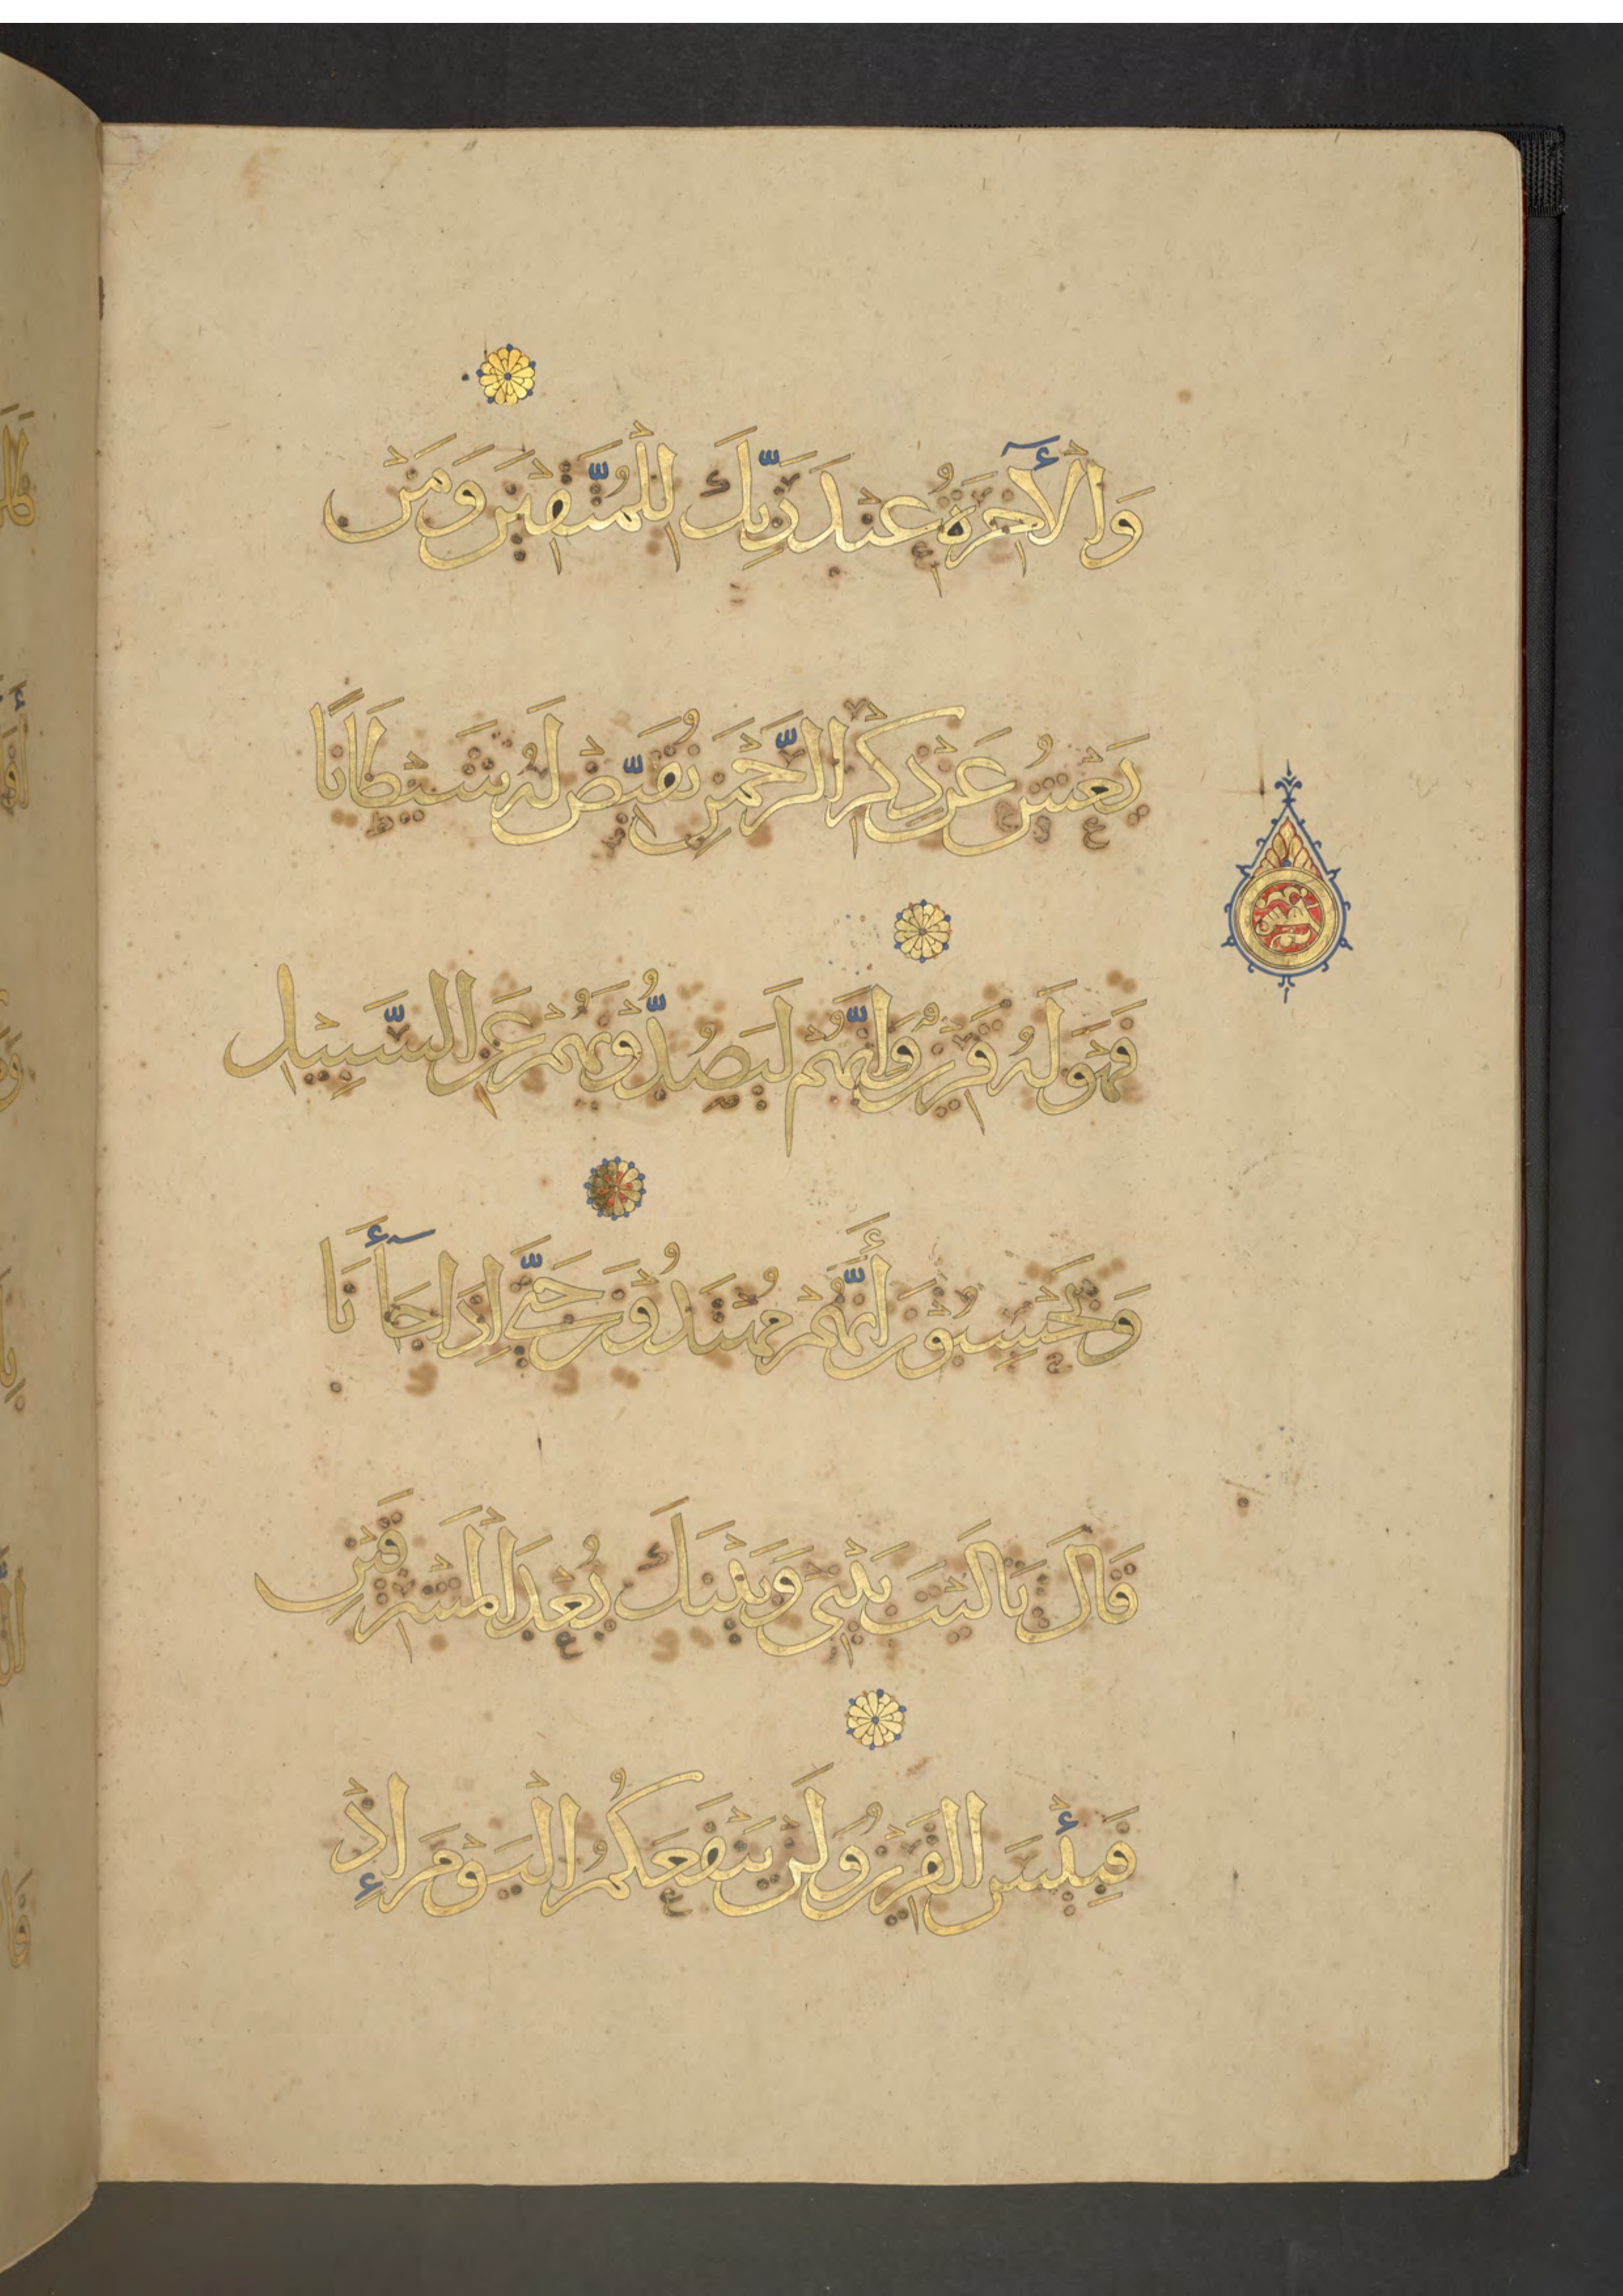 وَالْآخِرَةُ عِنْدَ رَبِّكَ لِلْمُتَّقِينَ وَمَنْ
يَعْشُ عَنْ ذِكْرِ الرَّحْمَنِ نُقَيِّضْ لَهُ شَيْطَانًا
فَهُوَ لَهُ قَرِينٌ وَإِنَّهُمْ لَيَصُدُّونَهُمْ عَنِ السَّبِيلِ
وَيَحْسَِبُونَ أَنَّهُمْ مُهْتَدُونَ حَتَّى إِذَا جَاأَنَا
قَالَ يَالَيْتَ بَيْنِي وَبَيْنَكَ بُعْدَ الْمَشْرِقَيْنِ
فَبِئْسَ الْقَرِينُ وَلَنْ يَنْفَعَكُمُ الْيَوْمَ إِذْ